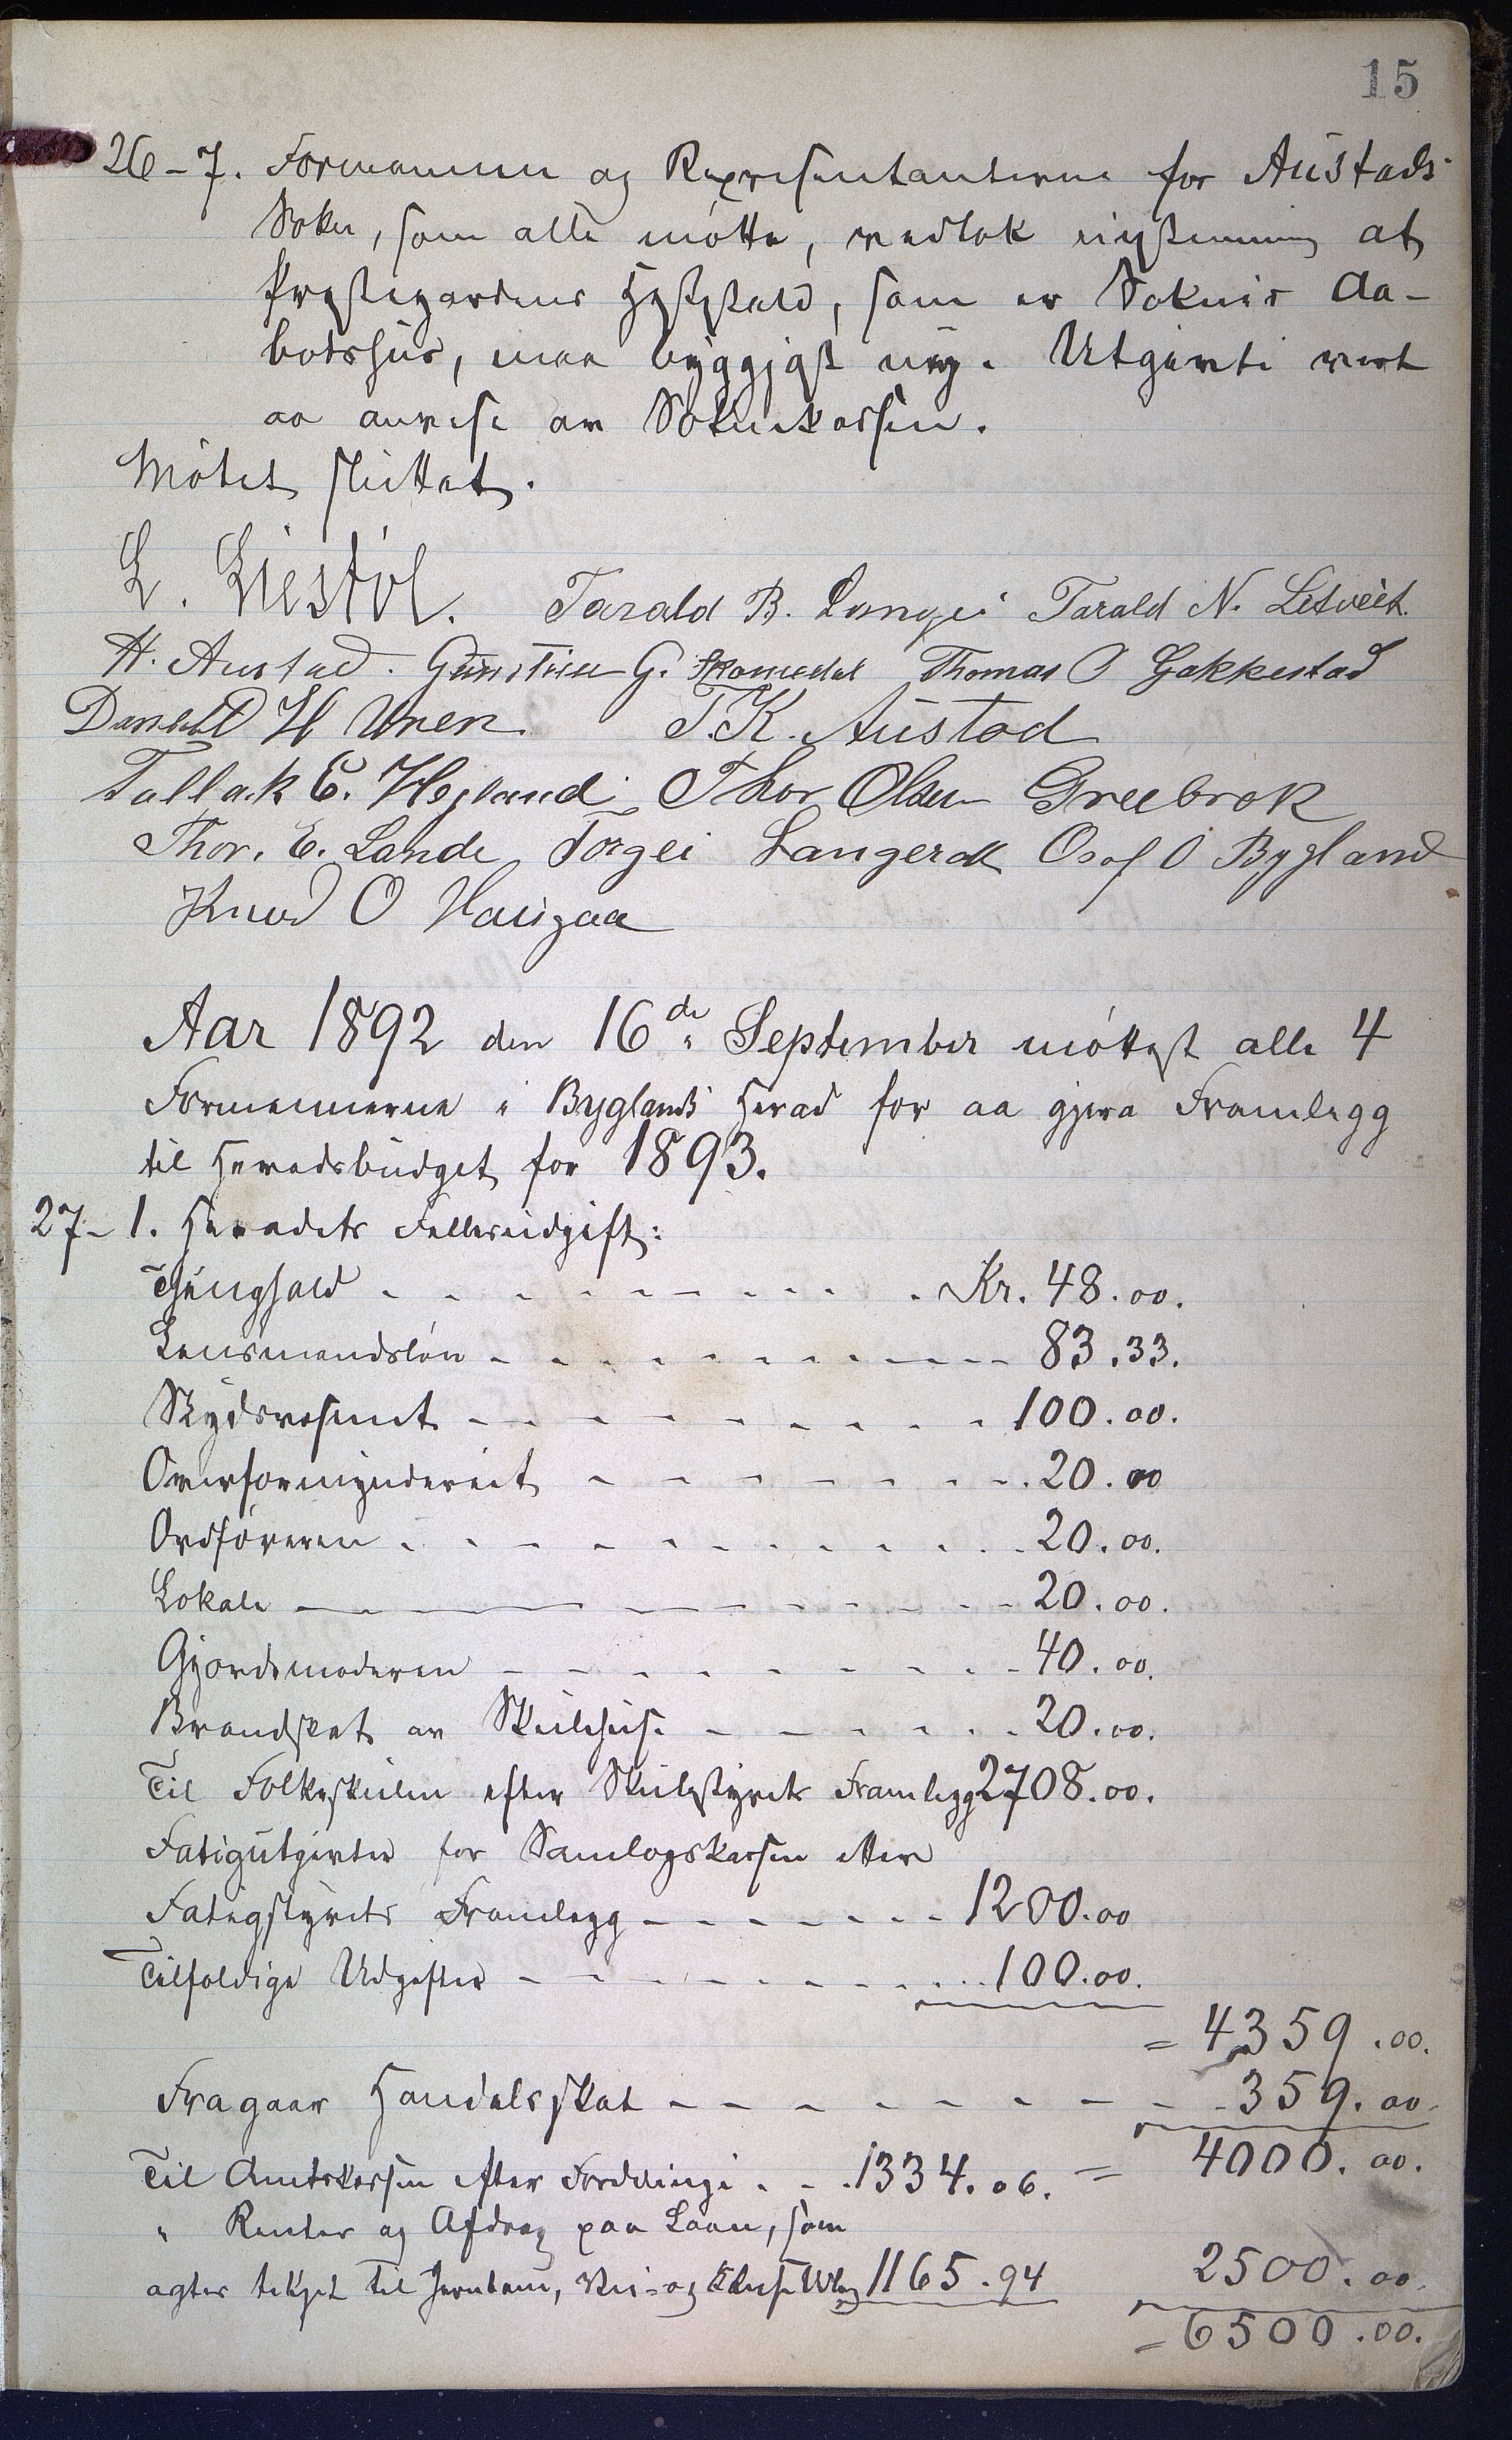 15
26-7. Formennerne og Representanterne for Austads
Sokn, som alle møtte, vedtok einstemmig at
Prestegardens Heststald, som er Soknes Aa-
botshus, maa byggjast ny. Utgivti vert
aa anvise av Soknekassen.
Møtet sluttat.
L. Liestøl. Tarald B. Langei Tarald N. Litveit.
H. Austad. Gunsteen G. Skomedal Thomas O Gakkestad
Daniel H Uren T. K. Austad
Tallak E. Hegland Thor Olsen Greebrok
Thor. E. Lande Torgei Langerak Osof O Bygland
Knud O Haugaa
Aar 1892 den 16de September møttest alle 4
Formennerne i Byglands Herad for aa gjera Framlegg
til Heradsbudget for 1893.
27- 1. Heradets Fellesudgift:
Thinghald Kr. 48.00.
Lensmandsløn 83.33.
Skydsvesenet 100.00.
Overformynderiet 20.00
Ordføreren 20.00.
Lokale 20.00.
Gjordemoderen 40.00.
Brandskat av Skulehuse 20.00.
Til Folkeskulen efter Skulestyrets Framlegg 2708.00.
Fatigutgivter for Samlagskassen etter
Fatigstyrets Framlegg 1200.00
Tilfoldige Udgifter 100.00.
= 4359.00.
Fragaar Handelsskat 359.00.
Til Amtskassen efter Fordelinge 1334.06. = 4000.00.
" Renter og Afdrag paa Laan, som
agtes tekjet til Jernbane, Vei- og 1165.94 2500.00.
= 6500.00.